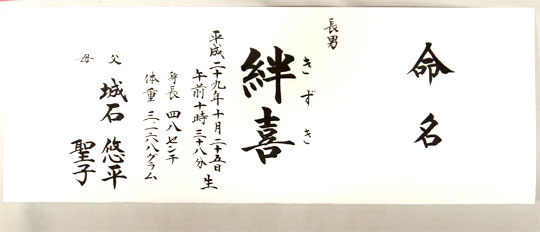 命名
長男
絆喜
きずき
平成二十九年十月二十五日
午前十時三十八分 生
身長 四八センチ
体重 三、一六八グラム
父 城石 悠平
母 聖子